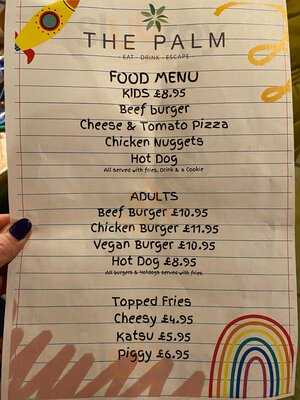 THE PALM
EAT - DRINK - ESCAPE
FOOD MENU
KIDS £8.95
Beef burger
Cheese & Tomato Pizza
Chicken Nuggets
Hot Dog
All served with fries, Drink & a Cookie
ADULTS
Beef Burger £10.95
Chicken Burger £11.95
Vegan Burger £10.95
Hot Dog £8.95
All burgers & Hotdogs served with fries.
Topped Fries
Cheesy £4.95
Katsu £5.95
Piggy £6.95